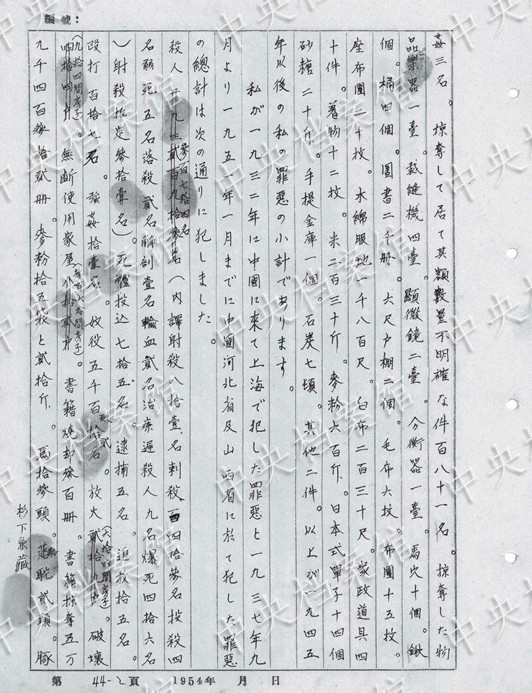 編號：
姦三名。掠奪して居て其類数量不明確な件百八十一名。掠奪した物
品樂器一臺。裁縫機四臺。顯微鏡二臺。分衡器一臺。馬穴十個。鍬
個。桶四個。圖書二千冊。六尺戸棚二個。毛布六枚。布團十五枚。
座布團二十枚。木綿服地一千八百尺。白布二百三十尺。家政道具四
十件。着物十二枚。米二百三十斤。麥粉六百斤。日本式箪子十四個
砂糖二十斤。手提金庫一個。石炭七頓。其他二件。以上が一九四五
年以後の私の罪惡の小計であります。
私が一九三二年に中國に来て上海で犯した罪惡と一九三七年九
月より一九五一年一月までに中國河北省及山西省に於て犯した罪惡
の總計は次の通りに犯しました。
殺人 (内譯射殺八拾壹名刺殺 四拾參名投殺四
名餓死五名落殺貳名解剖壹名輸血貳名治療過殺人九名爆死四拾六名
)射殺推定參拾壹名)。死體投込七拾五名。逮捕五名。追放拾五名。
毆打百拾七名。強姦拾壹名。奴役五千百 拾名。放火貳拾 破壞
無断使用家屋 書籍燒却參百冊。書籍掠奪五万
九千四百參拾貳冊。麥粉拾五袋と貳拾斤。馬拾參頭。 貳頭。豚
杉下兼藏
第 44-2 頁 1954年 月 日
中央档案馆